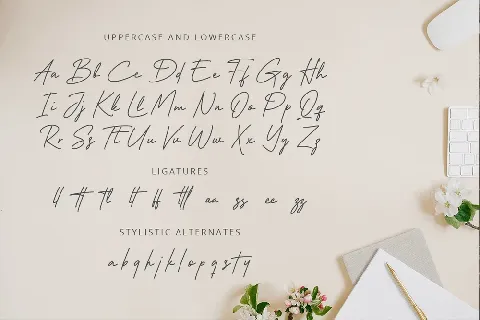 UPPERCASE AND LOWERCASE
Aa Bb Cc Dd Ee Ff Gg Hh
Ii Jj Kk Ll Mm Nn Oo Pp Qq
Rr Ss Tt Uu Vv Ww Xx Yy Zz
LIGATURES
ll tt tl lt ff ttl aa ss ee zz
STYLISTIC ALTERNATES
a b q h j k l o p q s t y